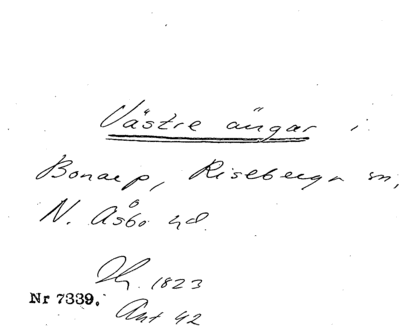 Västre ängar i
Bonarp, Riseberga sn,
N. Åsbo hd.
1823
Nr 7339.
Ant 42